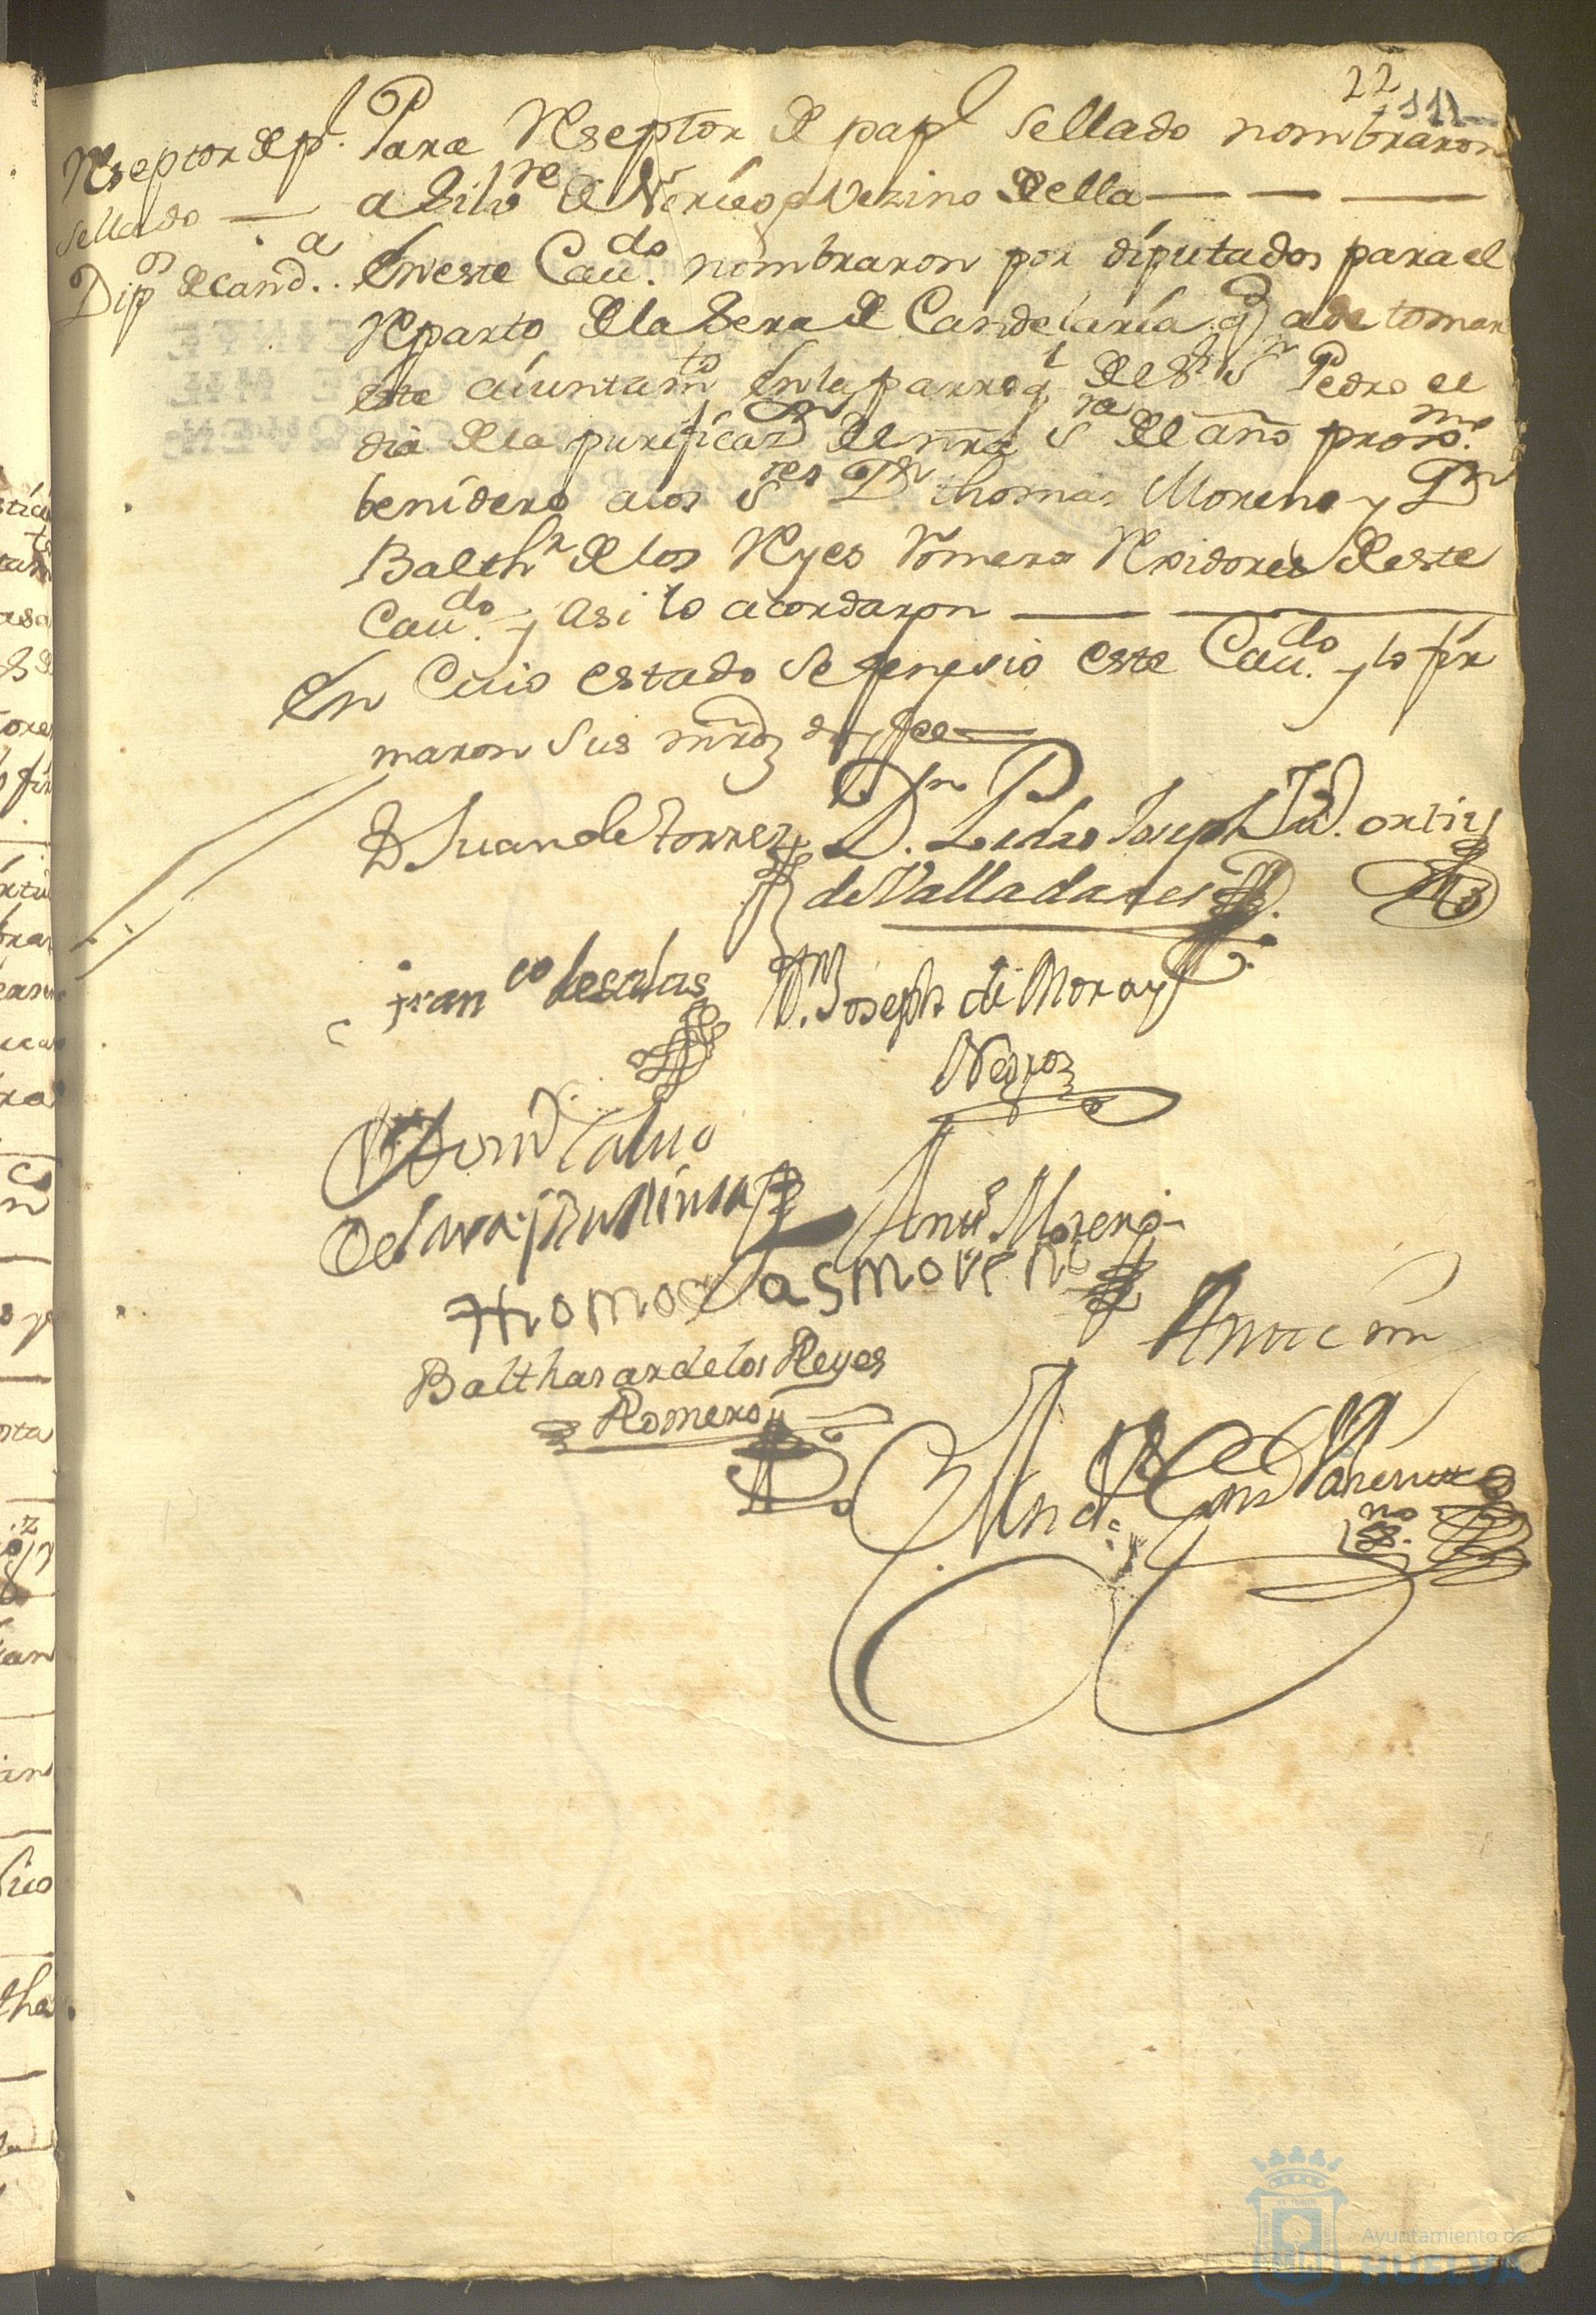 22
112
Reseptor de p.l
sellado —
Para Reseptor de papl sellado nombraron
a Silvre de Vezino della — — —
Dipos de cand.a
En este Cavdo. nombraron por diputados para el
Reparto de la Sera de Candelaria q ade tomar
este aiuntamto en la parroql de Sr Sn Pedro el
dia de la purificazon de nra Sra del año proxmo.
benidero a los Sres Dn thomas Moreno y Dn
Balthr de los Reyes Romero Rexidores deste
Cavdo. y Asi lo acordaron —
En Cuio estado se fenesio este Cavdo. y lo fir
maron Sus mrds doy fee —
D Juan de torres
Dn. Pedro Joseph ortiz
de Valladares
franco de salas
Dn. Joseph de Mora y
Negron
Calvo
De Lara
Anto Moreno
thomas moreno
Balthasar de los Reyes
Romero
Ante mi
Ayuntamiento de
HUELVA